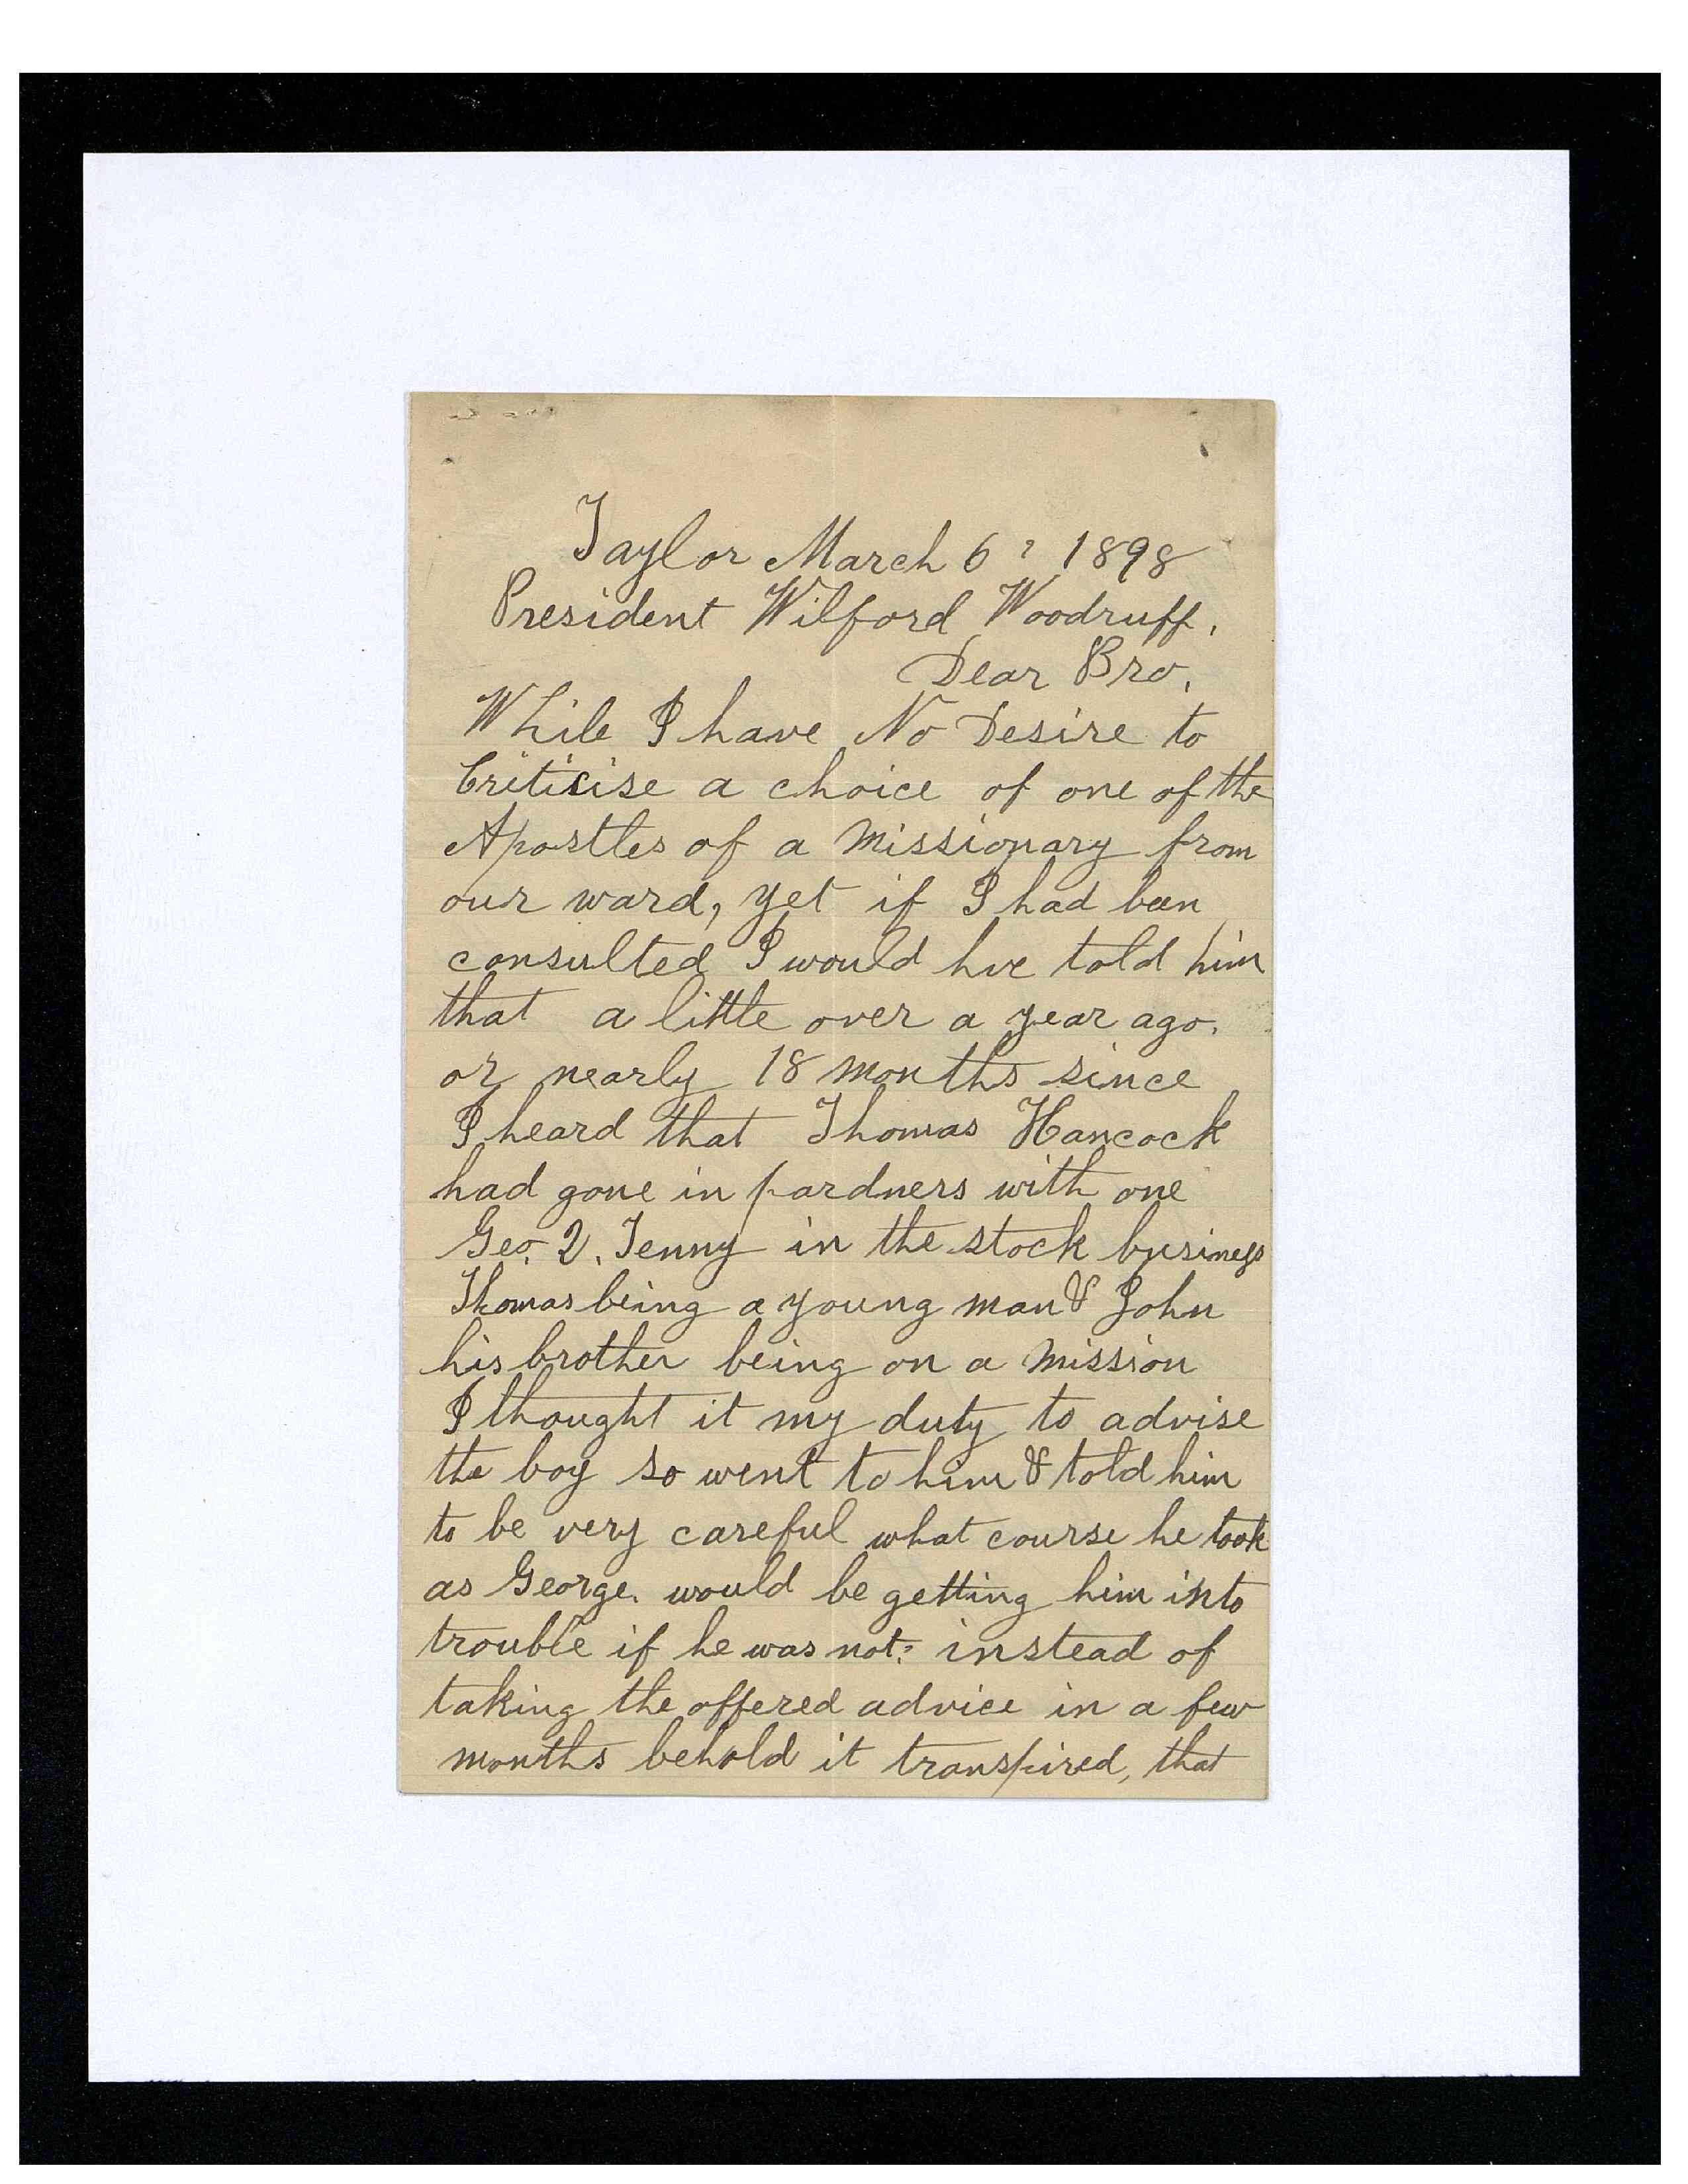 Taylor March 6, 1898
President Wilford Woodruff.
Dear Bro,
While I have No Desire to
Criticise a choice of one of the
Apostles of a Missionary from
our ward, yet if I had been
consulted I would hve told him
that a little over a year ago.
or nearly 18 months since
I heard that Thomas Hancock
had gone in pardners with one
Geo. Q. Tenny in the stock business
Thomas being a young man & John
his brother being on a Mission
I thought it my duty to advise
the boy so went to him & told him
to be very careful what course he took
as George. would be getting him into
trouble if he was not: instead of
taking the offered advice in a few
months behold it transpired, that